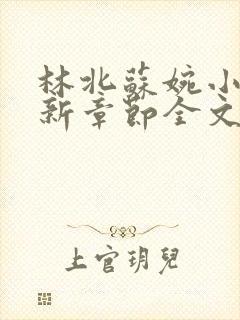 林北蘇婉小
新章節全文
上官玥兒